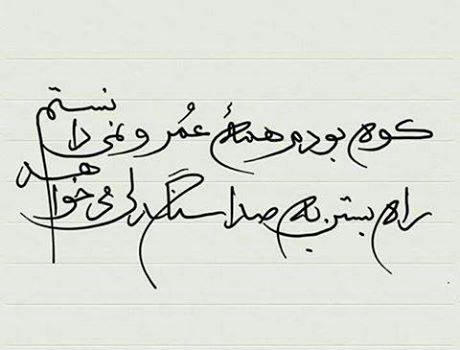 کوه بودم همهٔ عُمر و نمی دانستم
راه بستن به صدا سنگدلی می خواهد